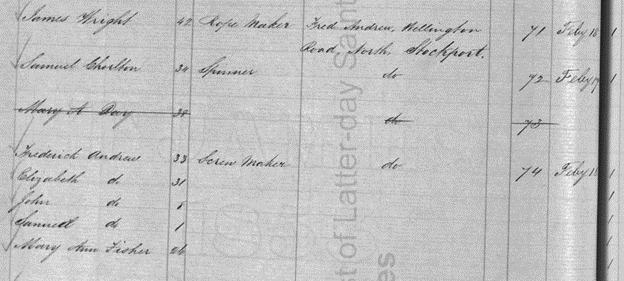 James Wright 42 Rope Maker Fred Andrew, Wellington 71 Feby 18 1
Road, North Stockport.
Samuel Chorlton 34 Spinner do 72 Feby 19 1
Mary A Day 38 do 73
Frederick Andrew 33 Screw Maker do 74 Feby 18 1
Elizabeth do 31 1
John do 5 1
Samuel do 1 1
Mary Ann Fisher 26 1
st of Latter-day Saint
es